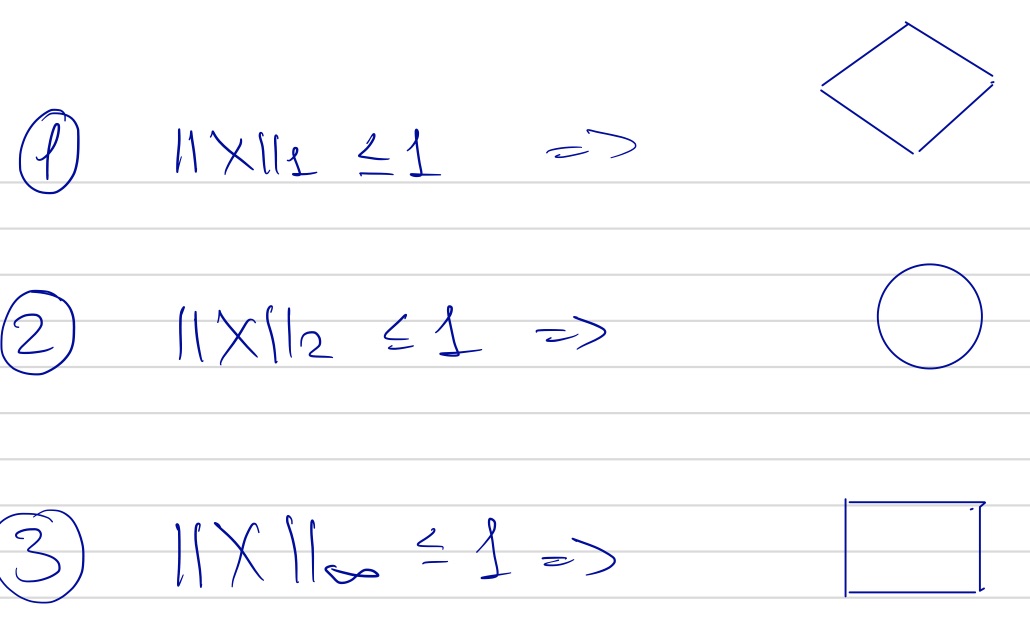 ① ||X||₁ ≤ 1 =>
② ||X||₂ ≤ 1 =>
③ ||X||∞ ≤ 1 =>